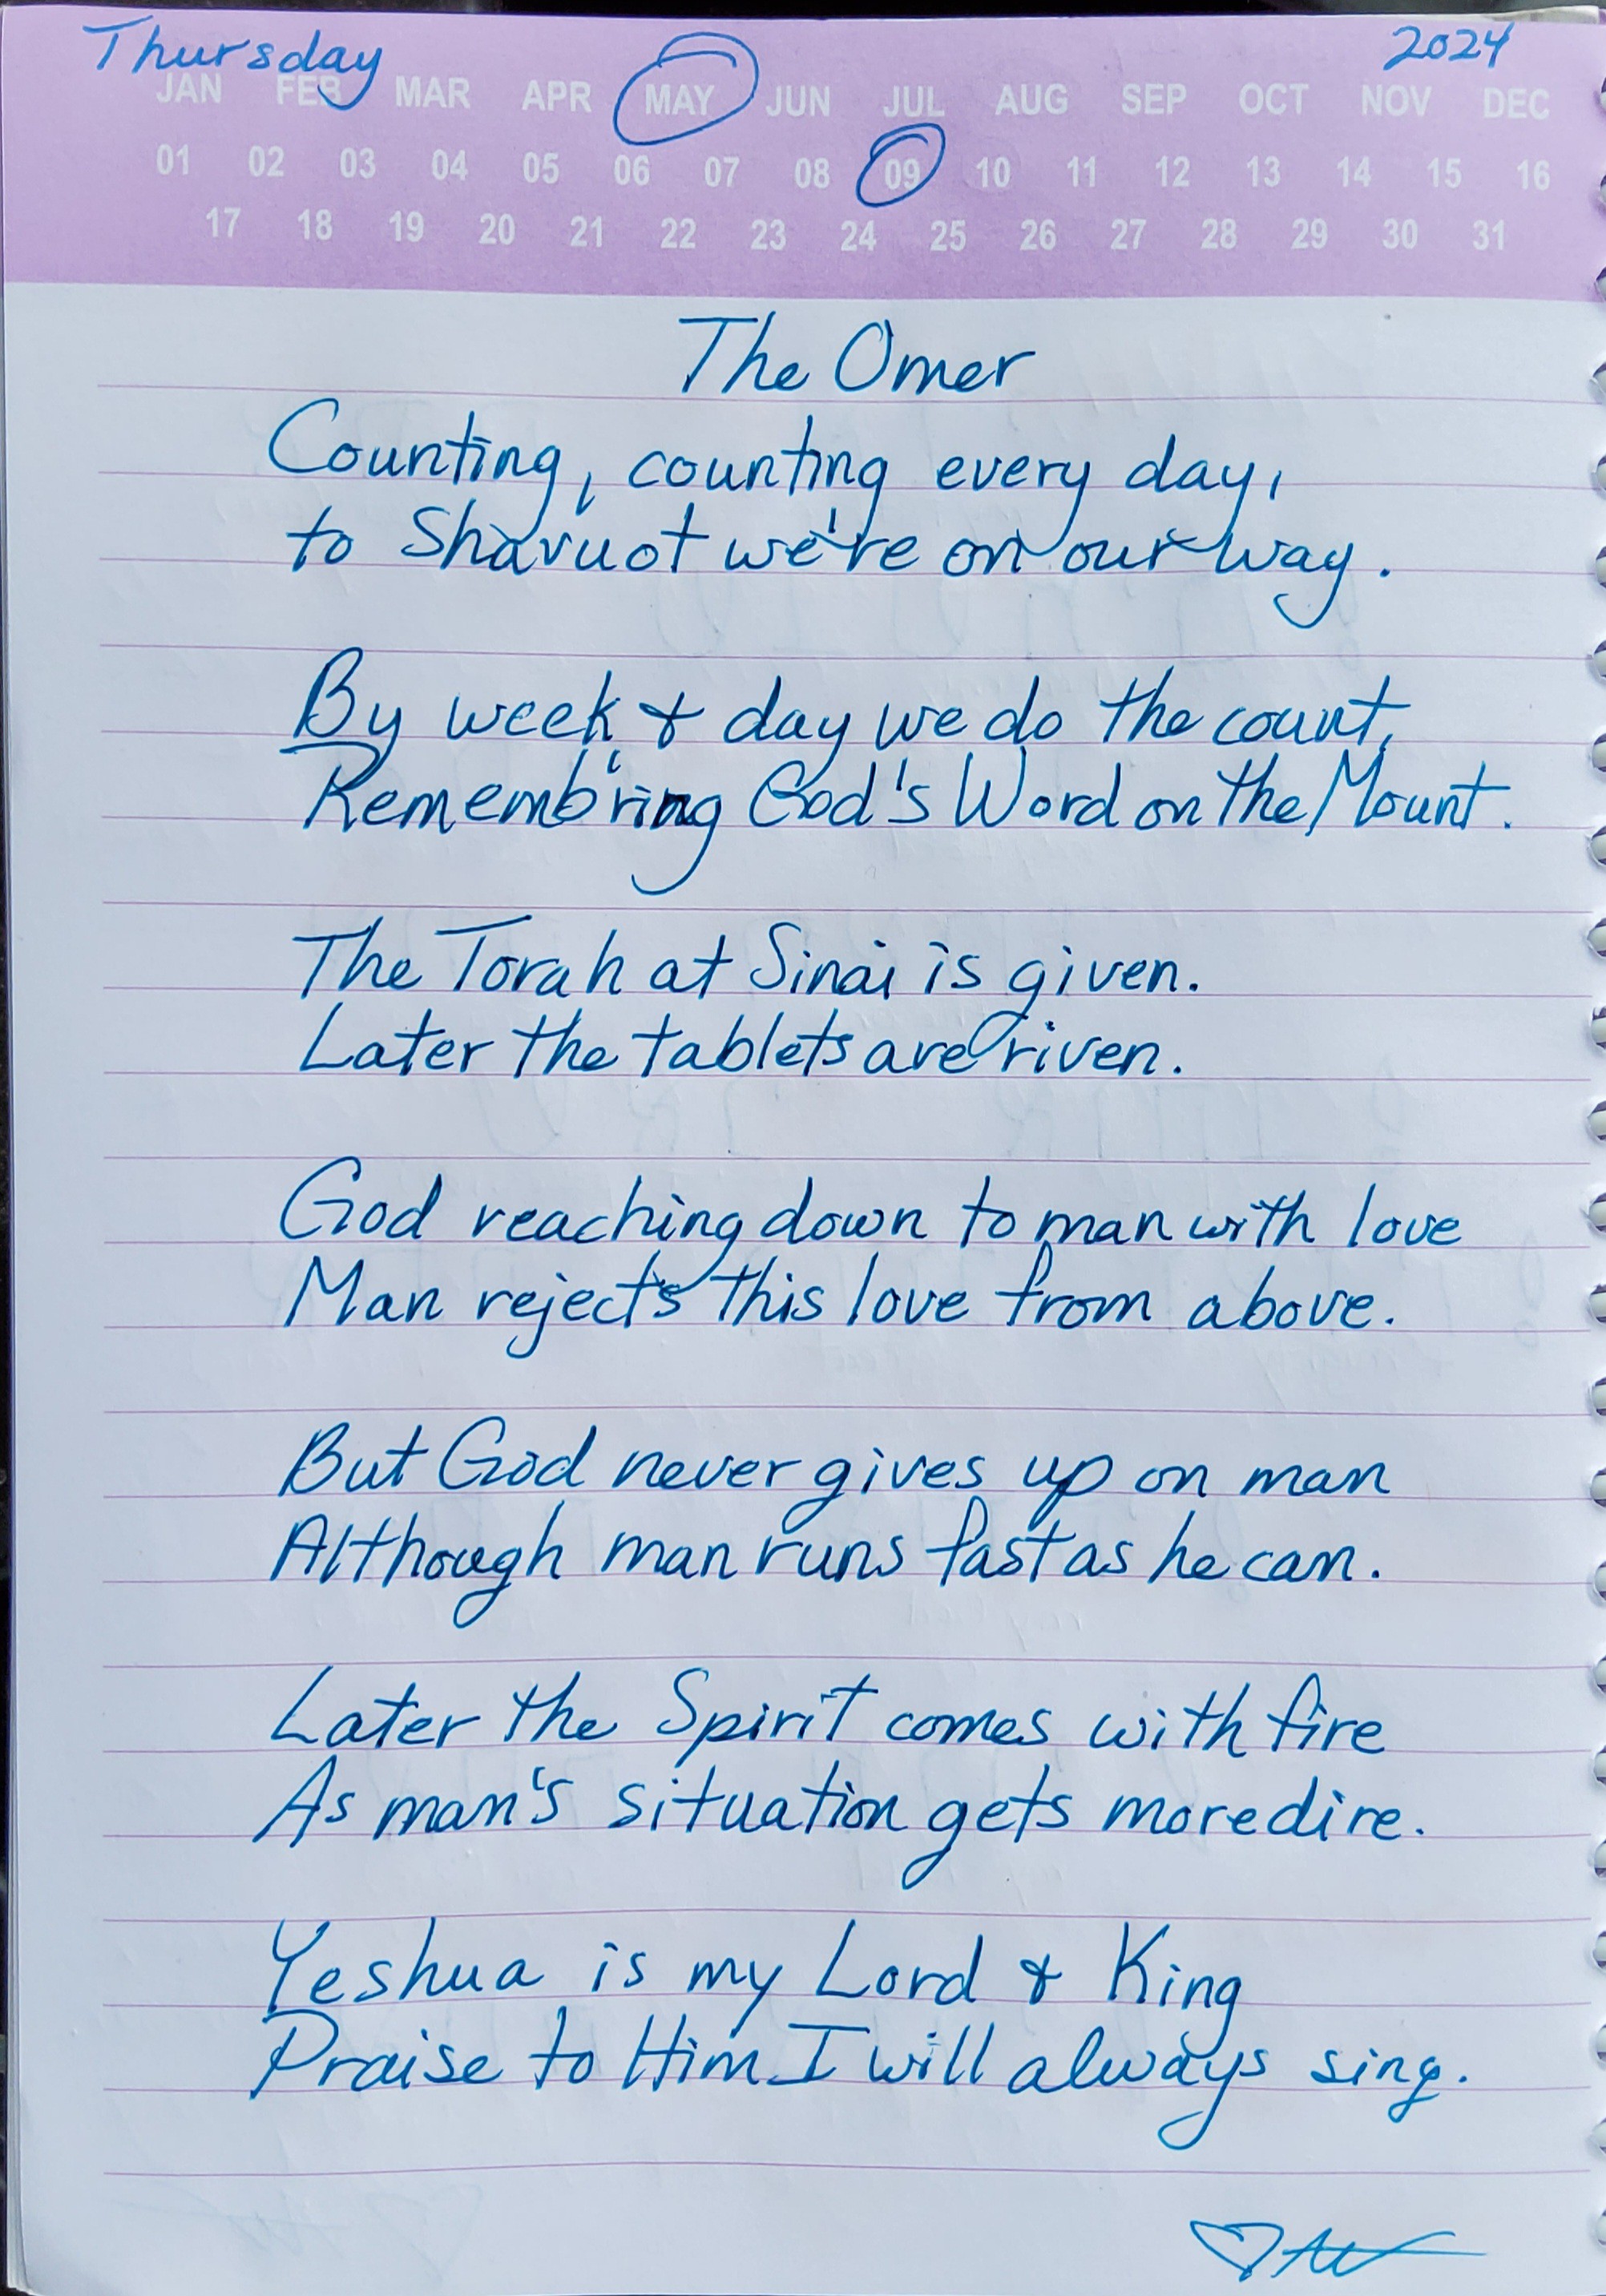 Thursday 2024
JAN FEB MAR APR MAY JUN JUL AUG SEP OCT NOV DEC
01 02 03 04 05 06 07 08 09 10 11 12 13 14 15 16
17 18 19 20 21 22 23 24 25 26 27 28 29 30 31
The Omer
Counting, counting every day,
to Shavuot we're on our way.
By week & day we do the count,
Rememb'ring God's Word on the Mount.
The Torah at Sinai is given.
Later the tablets are riven.
God reaching down to man with love
Man rejects this love from above.
But God never gives up on man
Although man runs fast as he can.
Later the Spirit comes with fire
As man's situation gets more dire.
Yeshua is my Lord & King
Praise to Him I will always sing.